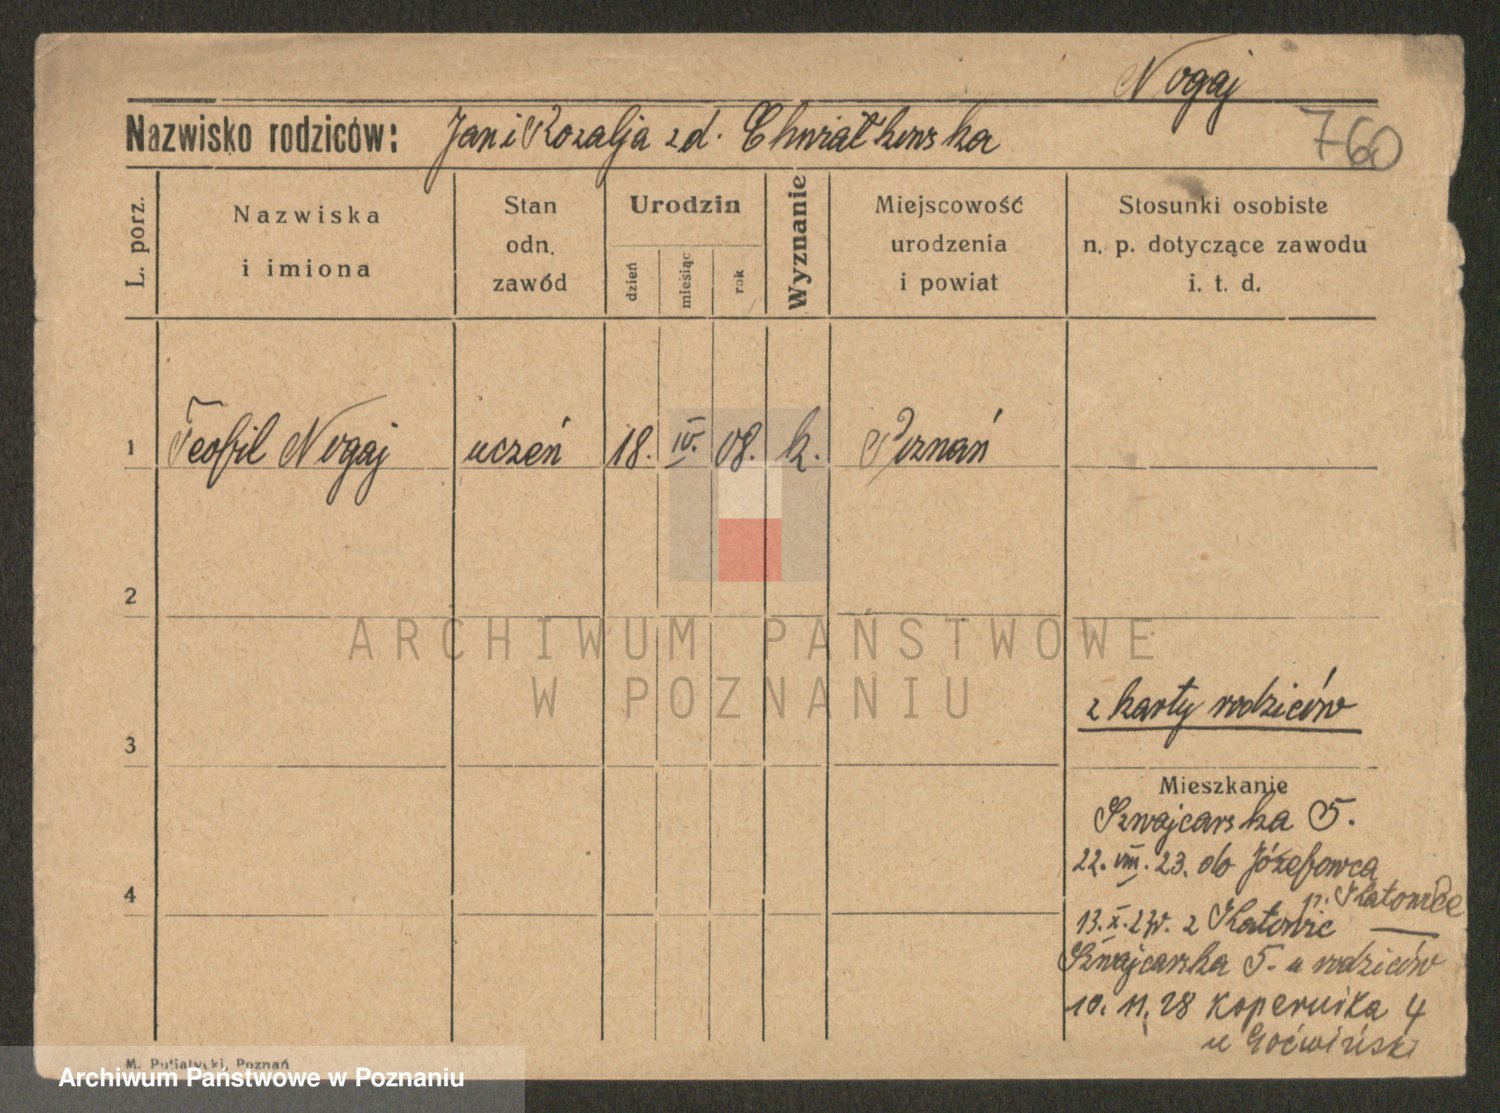 Nogaj
Nazwisko rodziców: Jan i Rozalja z d. Chwiałkowska
760
L. porz.
Nazwiska i imiona
Stan odn. zawód
Urodzin
dzień miesiąc rok
Wyznanie
Miejscowość urodzenia i powiat
Stosunki osobiste n. p. dotyczące zawodu i. t. d.
1 Teofil Nogaj uczeń 18. IV. 08. k. Poznań
2
ARCHIWUM PAŃSTWOWE
W POZNANIU
z karty rodziców
3
Mieszkanie
Szwajcarska 5.
22. VIII. 23. do Józefowca
p. Katowice
4
13. X. 23 z Katowic
Szwajcarska 5. u rodziców
10. 11. 28 Kopernika 4
u
M. Putiatycki, Poznań
Archiwum Państwowe w Poznaniu